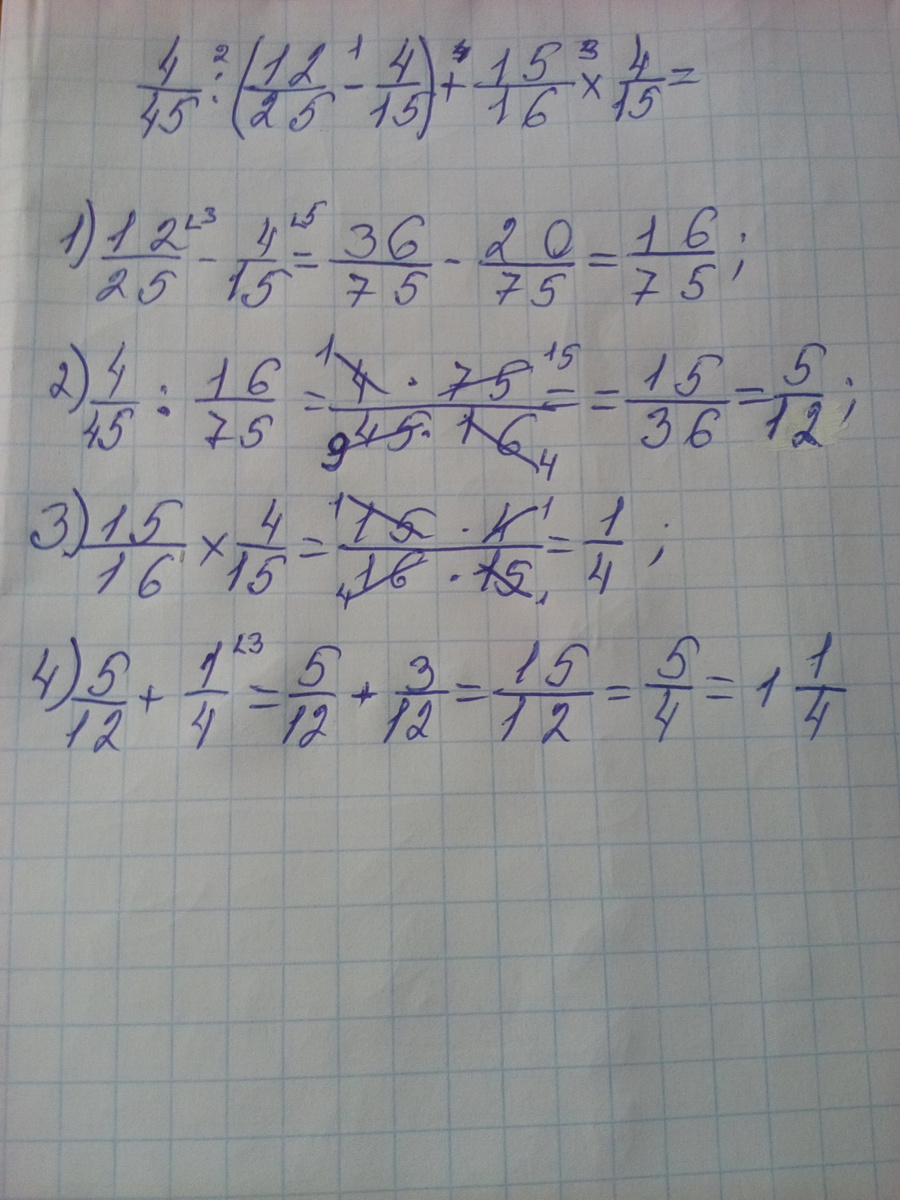 4/45 :² (12/25 -¹ 4/15) +⁴ 15/16 ×³ 4/15 =
1) 12/25 ∟3 - 4/15 ∟5 = 36/75 - 20/75 = 16/75 ;
2) 4/45 : 16/75 = 1 4 · 75 15 / 9 45 · 16 4 = = 15/36 = 5/12 ;
3) 15/16 × 4/15 = 1 15 · 4 1 / 4 16 · 15 1 = 1/4 ;
4) 5/12 + 1/4 ∟3 = 5/12 + 3/12 = 15/12 = 5/4 = 1 1/4